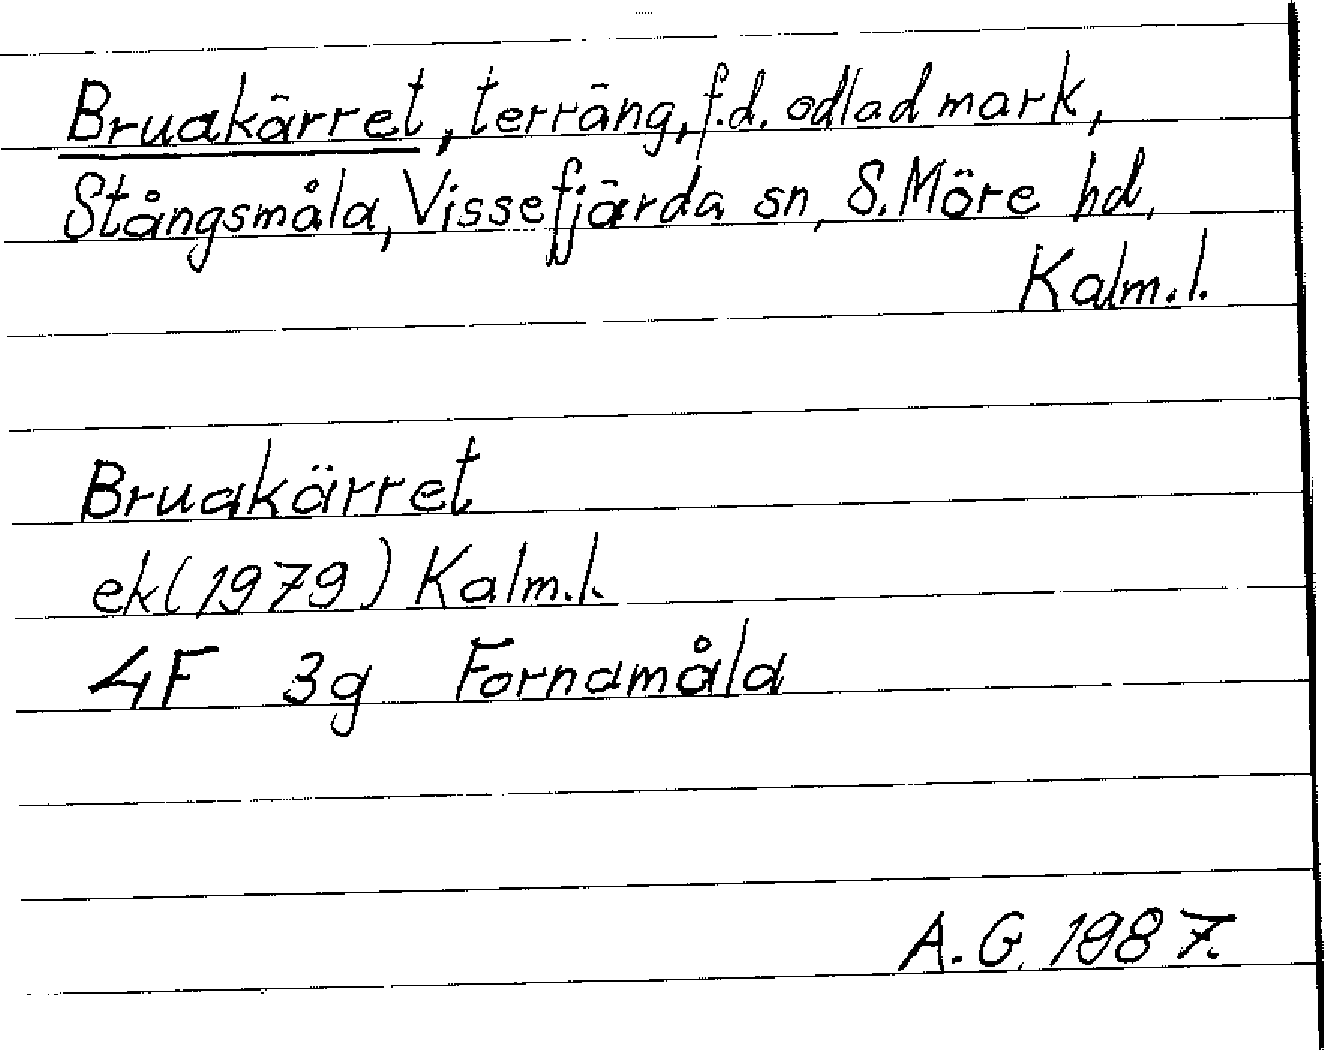 Bruakärret, terräng, f.d. odlad mark,
Stångsmåla, Vissefjärda sn, S. Möre hd,
Kalm. l.
Bruakärret
ek (1979) Kalm. l.
4F 3g Fornamåla
A. G. 1987.